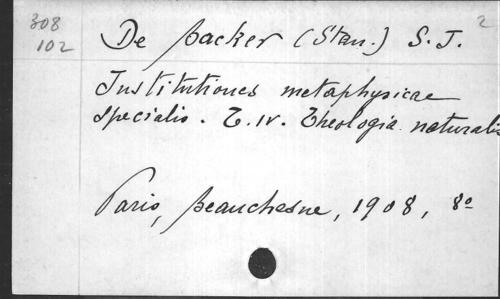 308
102
2
De Backer (Stan.) S. J.
Institutiones metaphysicae
specialis. T. IV. Theologia naturalis
Paris, Beauchesne, 1908, 8º